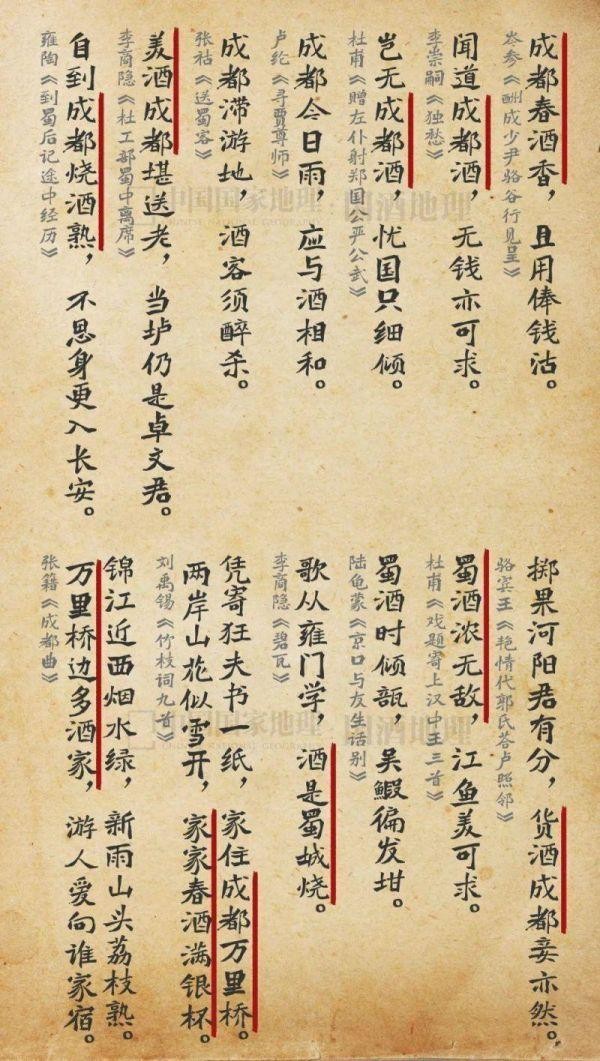 成都春酒香，且用俸钱沽。
岑参《酬成少尹骆谷行见呈》
闻道成都酒，无钱亦可求。
李崇嗣《独愁》
岂无成都酒，忧国只细倾。
杜甫《赠左仆射郑国公严公武》
成都今日雨，应与酒相和。
卢纶《寻贾尊师》
成都滞游地，酒客须醉杀。
张祜《送蜀客》
美酒成都堪送老，当垆仍是卓文君。
李商隐《杜工部蜀中离席》
自到成都烧酒熟，不思身更入长安。
雍陶《到蜀后记途中经历》
掷果河阳君有分，货酒成都妾亦然。
骆宾王《艳情代郭氏答卢照邻》
蜀酒浓无敌，江鱼美可求。
杜甫《戏题寄上汉中王三首》
蜀酒时倾瓿，吴鰕徧发坩。
陆龟蒙《京口与友生话别》
歌从雍门学，酒是蜀城烧。
李商隐《碧瓦》
凭寄狂夫书一纸，家住成都万里桥。
两岸山花似雪开，家家春酒满银杯。
刘禹锡《竹枝词九首》
锦江近西烟水绿，新雨山头荔枝熟。
万里桥边多酒家，游人爱向谁家宿。
张籍《成都曲》
中国国家地理
酒地理
中国国家地理
酒地理